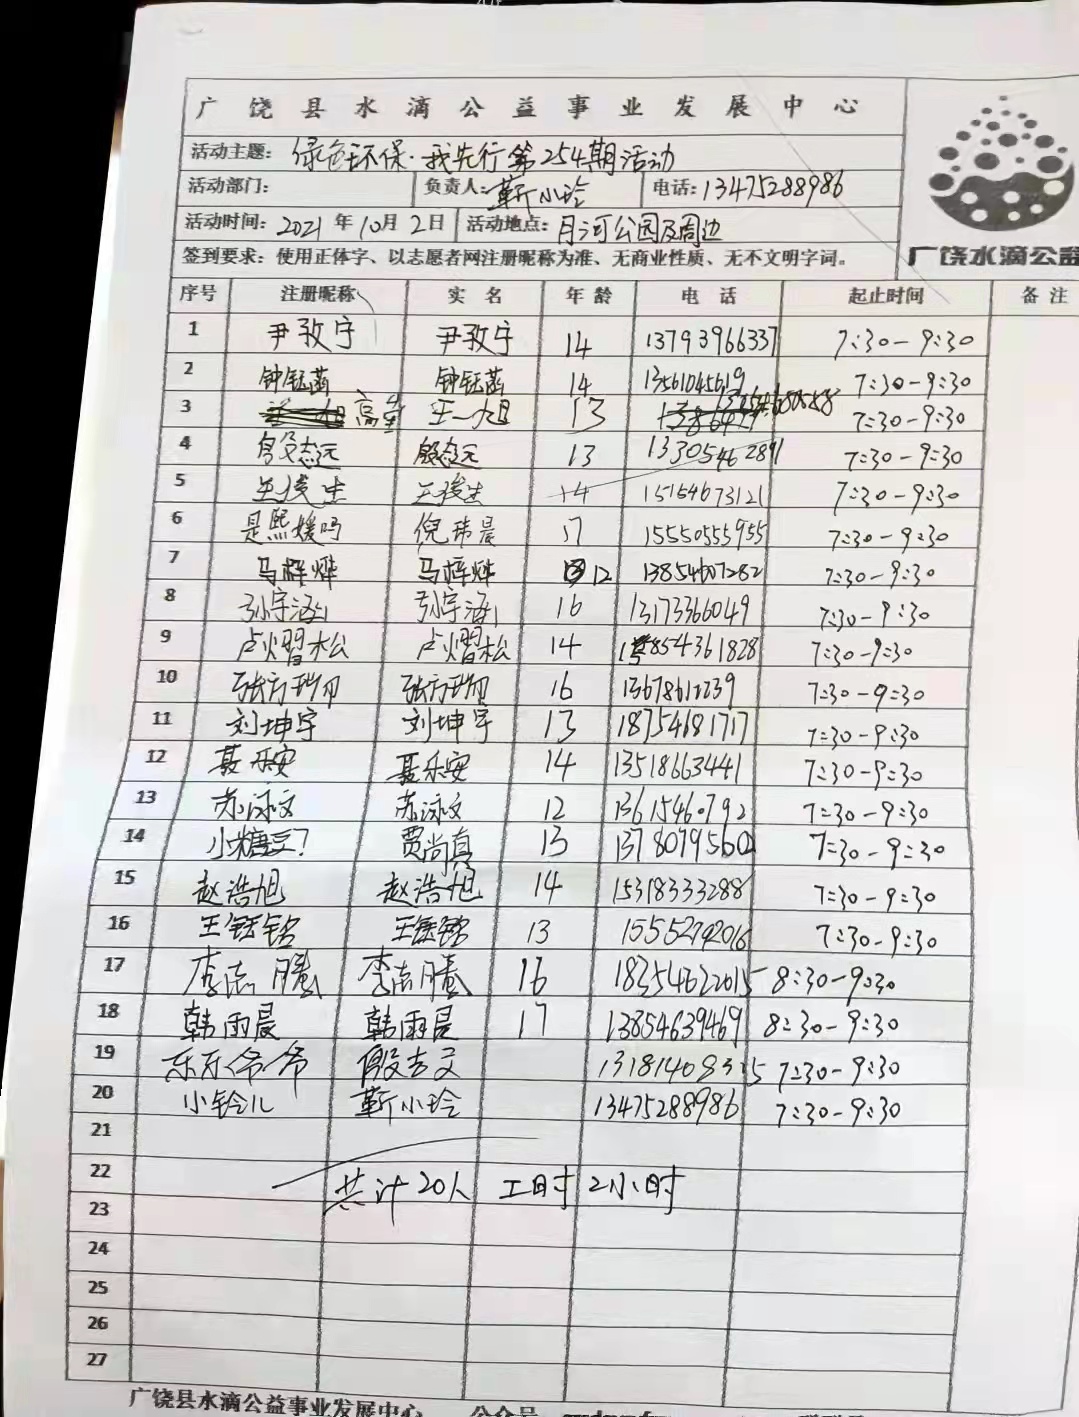 广饶县水滴公益事业发展中心
活动主题: 绿色环保·我先行第254期活动
活动部门: 负责人: 靳小玲 电话: 13475288986
活动时间: 2021年10月2日 活动地点: 月河公园及周边
签到要求: 使用正体字、以志愿者网注册昵称为准、无商业性质、无不文明字词。
广饶水滴公益
序号 注册昵称 实名 年龄 电话 起止时间 备注
1 尹孜宁 尹孜宁 14 13793966337 7:30-9:30
2 钟钰菡 钟钰菡 14 13561045619 7:30-9:30
3 王一旭 13 7:30-9:30
4 殷志远 殷志远 13 13305462891 7:30-9:30
5 14 15154673121 7:30-9:30
6 是熙媛吗 倪玮晨 17 15550555955 7:30-9:30
7 马梓烨 马梓烨 12 13854607282 7:30-9:30
8 16 13173366049 7:30-9:30
9 卢熠松 卢熠松 14 854361828 7:30-9:30
10 16 7:30-9:30
11 刘坤宇 刘坤宇 13 18754681717 7:30-9:30
12 聂乐安 聂乐安 14 13518663441 7:30-9:30
13 苏泳文 苏泳文 12 13615460792 7:30-9:30
14 小糖豆? 贾尚真 13 13780795602 7:30-9:30
15 赵浩旭 赵浩旭 14 15318333288 7:30-9:30
16 王钰铭 王钰铭 13 15552792016 7:30-9:30
17 李志腾 李志腾 16 18354622015 8:30-9:30
18 韩雨晨 韩雨晨 17 13854639469 8:30-9:30
19 东东爷爷 殷吉文 13181408315 7:30-9:30
20 小铃儿 靳小玲 13475288986 7:30-9:30
21
22 共计20人 工时 2小时
23
24
25
26
27
广饶县水滴公益事业发展中心 公众号